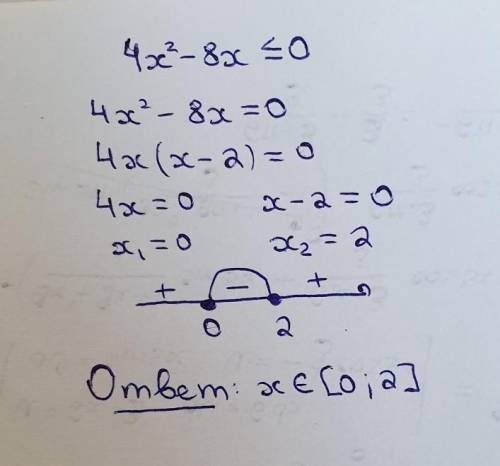 4x² - 8x ≤ 0
4x² - 8x = 0
4x(x - 2) = 0
4x = 0 x - 2 = 0
x₁ = 0 x₂ = 2
+ - +
0 2
Ответ: x ∈ [0; 2]